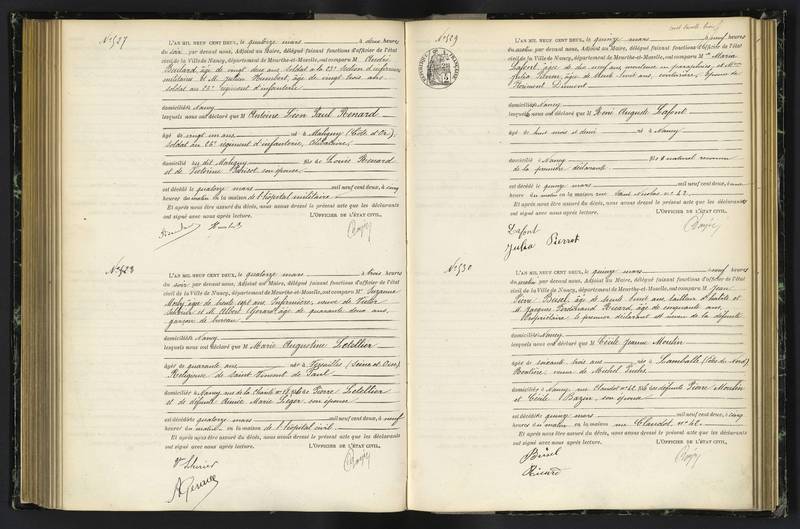 N° 527
L'AN MIL NEUF CENT DEUX, le quatorze mars à deux heures
du soir par devant nous, Adjoint au Maire, délégué faisant fonctions d'officier de l'état
civil de la Ville de Nancy, département de Meurthe-et-Moselle, ont comparu M
âgé de vingt deux ans soldat à la 23e Section d'infirmiers
militaires et M. Julien Humbert, âge de vingt trois ans
soldat au 26e régiment d'infanterie
domiciliés Nancy
lesquels nous ont déclaré que M Antoine Léon Paul Renard
âgé de vingt un ans né à Matigny (Côte d'Or),
soldat au 26e régiment d'infanterie, célibataire,
domicilié au dit Matigny fils de Louis Renard
et de Victorine son épouse,
est décédé le quatorze mars mil neuf cent deux, à cinq
heures du matin en la maison de l'hôpital militaire
Et après nous être assuré du décès, nous avons dressé le présent acte que les déclarants
ont signé avec nous après lecture. L'OFFICIER DE L'ÉTAT CIVIL,
N° 528
L'AN MIL NEUF CENT DEUX, le quatorze mars à trois heures
du soir par devant nous, Adjoint au Maire, délégué faisant fonctions d'officier de l'état
civil de la Ville de Nancy, département de Meurthe-et-Moselle, ont comparu Me Suzanne
âgée de trente sept ans Infirmière, veuve de Victor
et M. Albert Gérard âgé de quarante deux ans,
garçon de bureau
domiciliés Nancy
lesquels nous ont déclaré que M Marie Augustine Letellier
âgée de quarante ans née à Versailles (Seine et Oise)
Religieuse de Saint Vincent de Paul
domiciliée à Nancy, rue de la Charité fille de Pierre Letellier
et de défunte Marie Léger, son épouse
est décédée quatorze mars mil neuf cent deux, à neuf
heures du matin en la maison de l'hôpital civil
Et après nous être assuré du décès, nous avons dressé le présent acte que les déclarants
ont signé avec nous après lecture. L'OFFICIER DE L'ÉTAT CIVIL,
N° 529
L'AN MIL NEUF CENT DEUX, le quinze mars à neuf heures
du matin par devant nous, Adjoint au Maire, délégué faisant fonctions d'officier de l'état
civil de la Ville de Nancy, département de Meurthe-et-Moselle, ont comparu Me Maria
Lafont, âgée de dix neuf ans et Me
Julia Pierrot, âgée de trente huit ans, couturière, épouse de
domiciliées Nancy
lesquels nous ont déclaré que M René Auguste Lafont
âgé de huit mois et demi né à Nancy
domicilié à Nancy fils naturel reconnu
de la première déclarante
est décédé le quinze mars mil neuf cent deux, à une
heure du matin en la maison rue Saint Nicolas n° 42
Et après nous être assuré du décès, nous avons dressé le présent acte que les déclarants
ont signé avec nous après lecture. L'OFFICIER DE L'ÉTAT CIVIL,
Lafont
Julia Pierrot
N° 530
L'AN MIL NEUF CENT DEUX, le quinze mars à neuf heures
du matin par devant nous, Adjoint au Maire, délégué faisant fonctions d'officier de l'état
civil de la Ville de Nancy, département de Meurthe-et-Moselle, ont comparu M Jean
âgé de trente huit ans, tailleur d'habits et
M. Jacques Ferdinand Ricard, âgé de cinquante ans,
le premier déclarant de la défunte
domiciliés Nancy
lesquels nous ont déclaré que M Cécile Jeanne Moulin
âgée de soixante trois ans née à Lamballe (Côtes du Nord)
Rentière veuve de Michel
domiciliée à Nancy, rue Claudot n° 42 fille des défunts Pierre Moulin
et Cécile Bazin, son épouse
est décédée quinze mars mil neuf cent deux, à cinq
heures du matin en la maison rue Claudot n° 42
Et après nous être assuré du décès, nous avons dressé le présent acte que les déclarants
ont signé avec nous après lecture. L'OFFICIER DE L'ÉTAT CIVIL,
Ricard